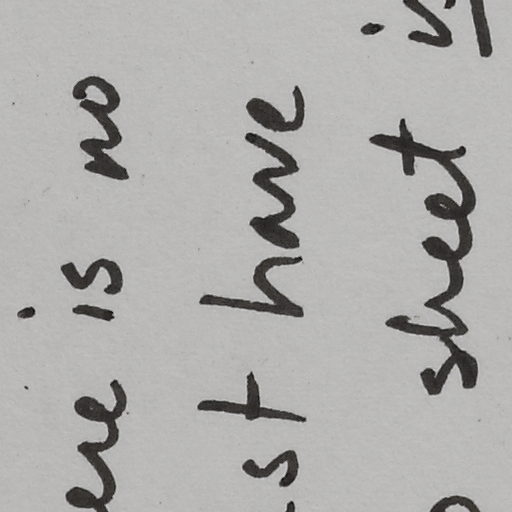 ere is no
st have
sheet